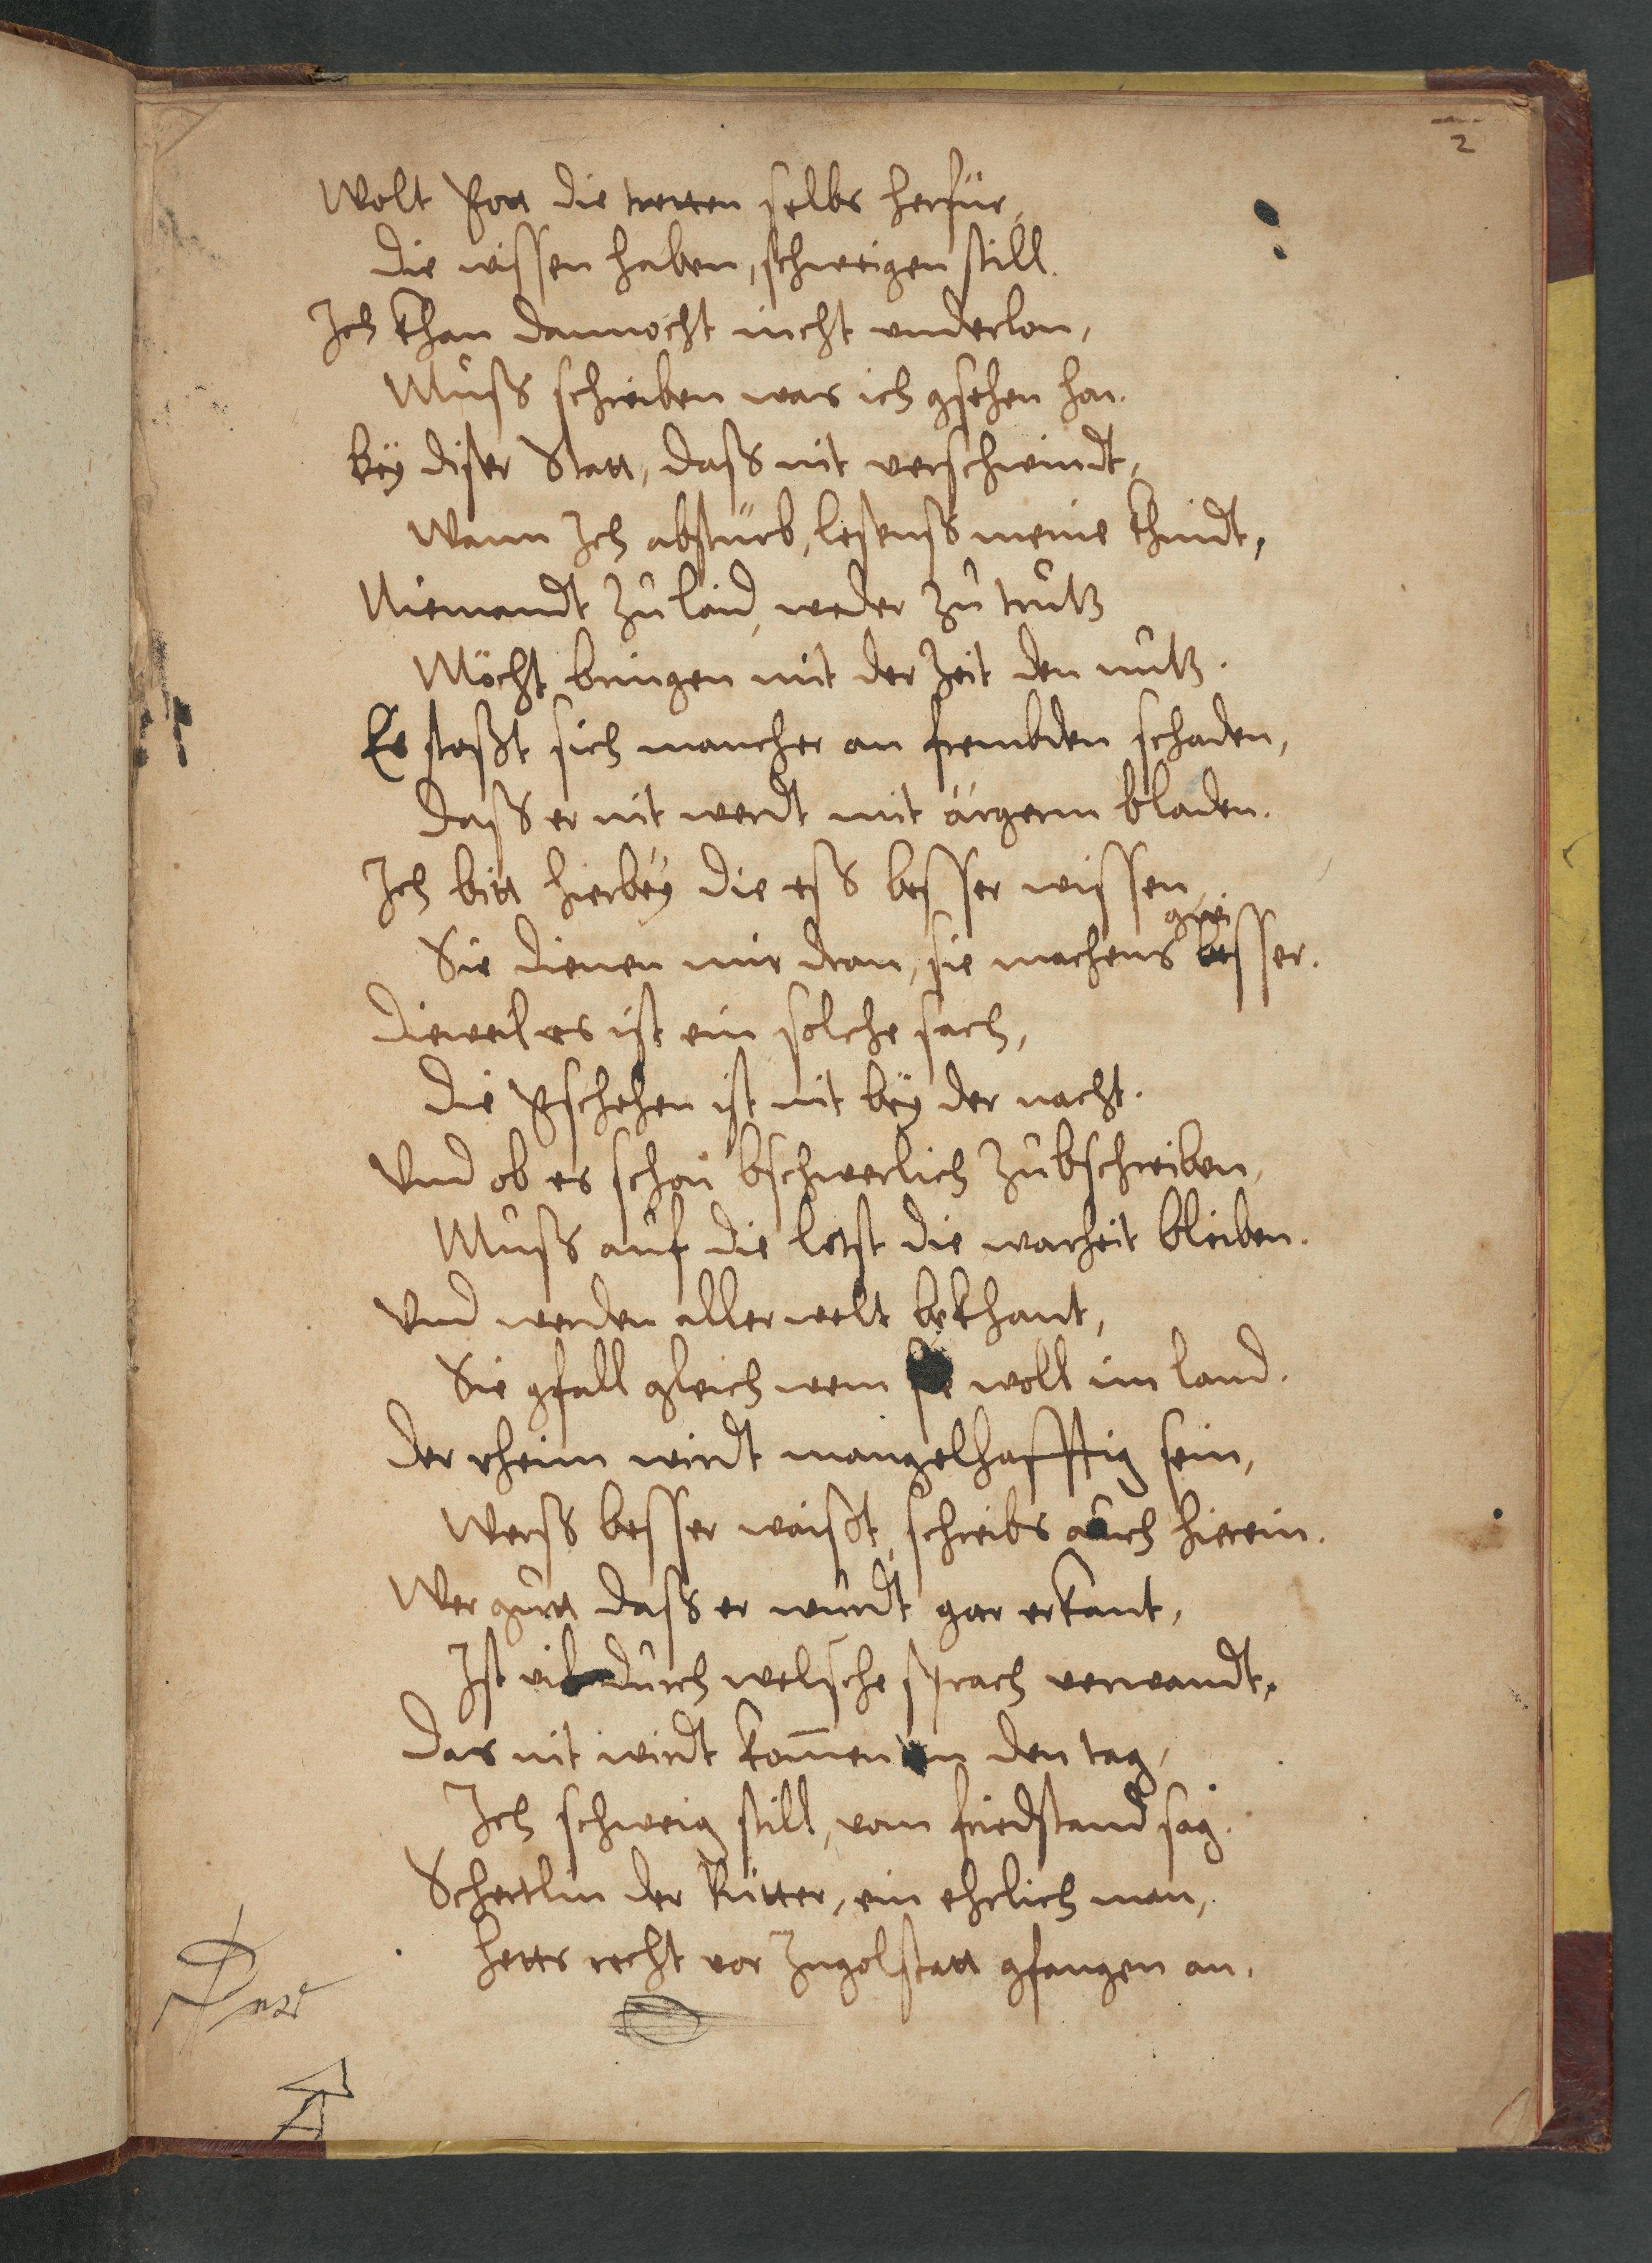 2
Wolt Gott die tretten selbs herfür,
die wissen haben, schweigen still.
Ich khan dannocht nicht underlon,
Muß schreiben was ich gsehen hon.
bey diser Statt, daß nit verschwindt,
Wann Ich absturb, lesenß meine khindt,
Niemandt zu laid, weder zu trutz
Möcht bringen mit der zeit den nutz.
Es stoßt sich mancher an frembden schaden,
Daß er nit werdt mit ärgerm bladen.
Ich bitt hierbey die eß besser wissen,
gwi
Sie dienen mir dran, sie machens besser.
Dieweil es ist ein solche sach,
die Gschehen ist nit bey der nacht.
Und ob es schon bschwerlich zubschreiben,
Muß auf die letst die warheit bleiben.
Und werden aller welt bekhant,
Sie gfall gleich wem sie woll im land.
Der rheim wirdt mangelhafftig sein,
Werß besser waißt, schreibs auch hierein.
Wer gutt daß er wurdt gar erkant,
Ist vil durch welsche sprach verwandt,
Das nit wirdt kom̄en an den tag,
Ich schweig still, vom fridstand sag.
Schertlin der Ritter, ein ehrlich man,
hetts recht vor Ingolstatt gfangen an.